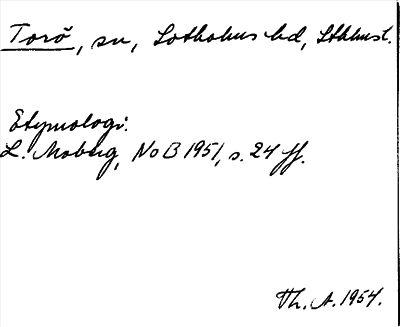 Torö, sn, Sotholms hd, Sthlmsl.
Etymologi:
L. Moberg, NoB 1951, s. 24 ff.
Th. A. 1954.